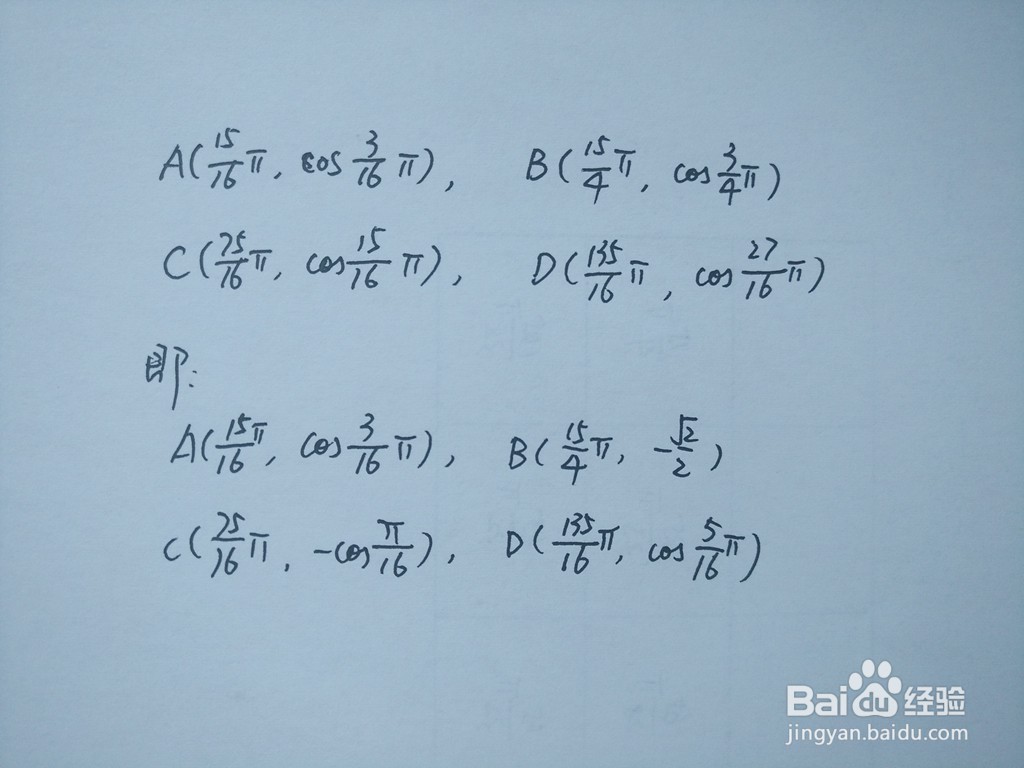 A(15/16 π, cos 3/16 π), B(15/4 π, cos 3/4 π)
C(75/16 π, cos 15/16 π), D(135/16 π, cos 27/16 π)
即:
A(15π/16, cos 3/16 π), B(15/4 π, -√2/2)
C(75/16 π, -cos π/16), D(135/16 π, cos 5/16 π)
Baidu经验
jingyan.baidu.com